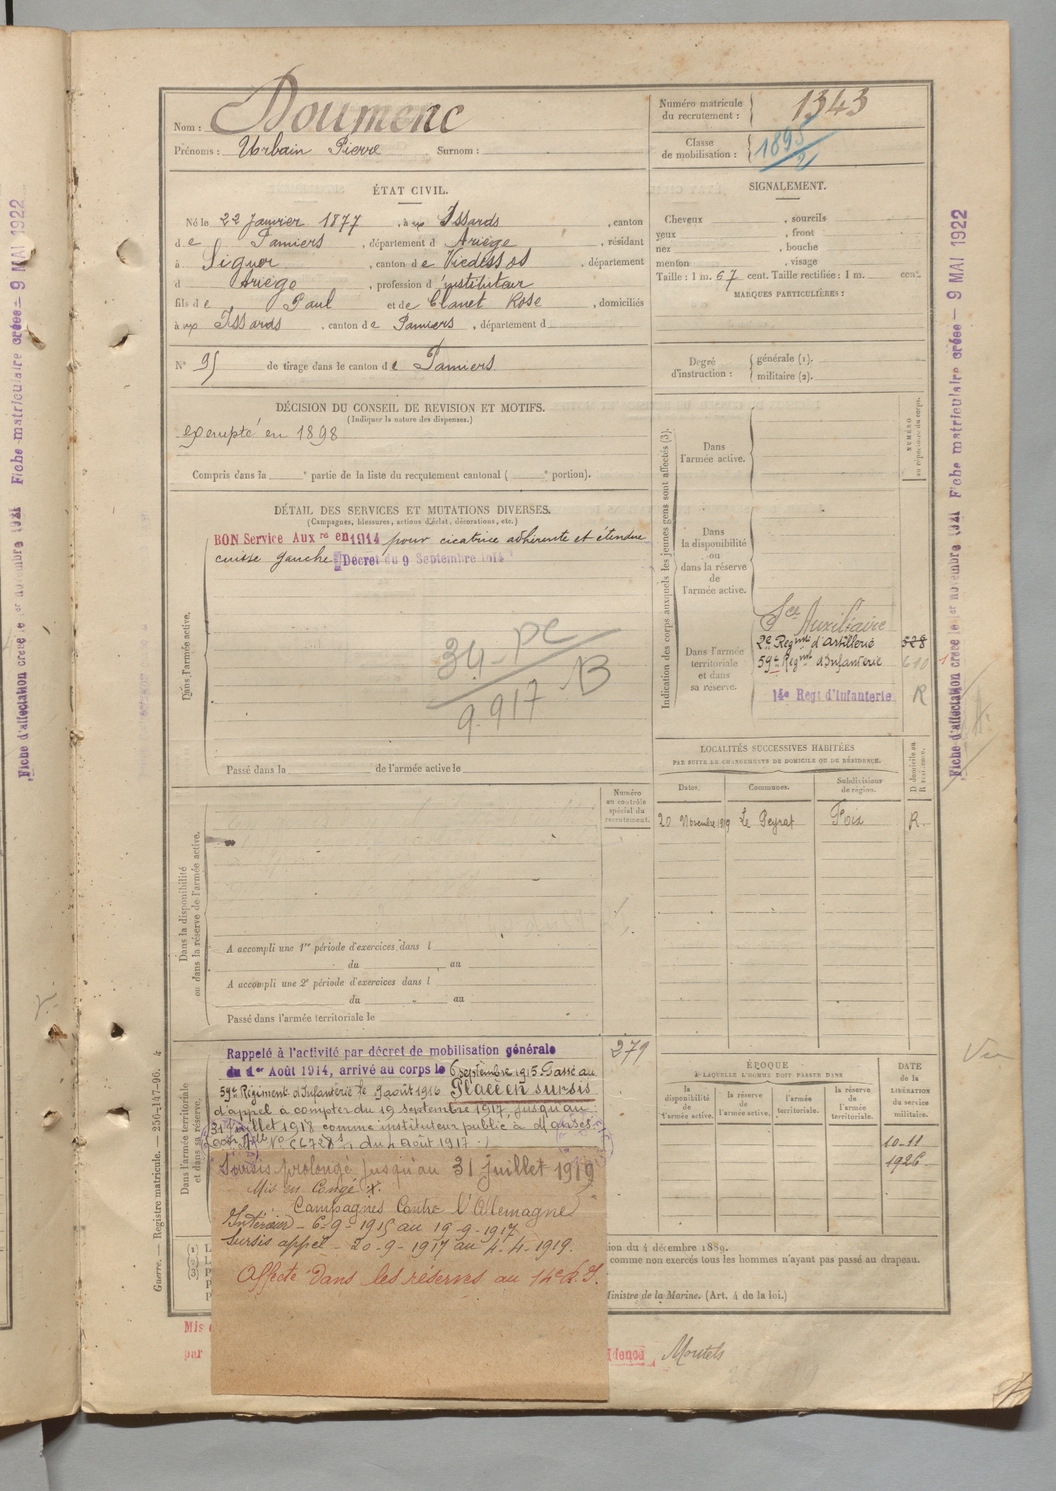 Nom : Doumenc
Prénoms : Urbain Pierre Surnom :
Numéro matricule
du recrutement : 1343
Classe
de mobilisation : 1895
ÉTAT CIVIL.
Né le 22 Janvier 1877, à ux Issards, canton
d e Pamiers, département d Ariège, résidant
à Siguer, canton d e Vicdessos, département
d Ariège, profession d'instituteur
fils d e Paul et d e Clanet Rose, domiciliés
à ux Issards, canton d e Pamiers, département d
N° 95 de tirage dans le canton d e Pamiers
SIGNALEMENT.
Cheveux , sourcils
yeux , front
nez , bouche
menton , visage
Taille : 1 m. 67 cent. Taille rectifiée : 1 m. cent.
MARQUES PARTICULIÈRES :
Degré
d'instruction :
générale (1).
militaire (2).
DÉCISION DU CONSEIL DE REVISION ET MOTIFS.
(Indiquer la nature des dispenses.)
Exempté en 1898
Compris dans la e partie de la liste du recrutement cantonal ( e portion).
DÉTAIL DES SERVICES ET MUTATIONS DIVERSES.
(Campagnes, blessures, actions d'éclat, décorations, etc.)
BON Service Aux re en 1914 pour cicatrice adhérente et étendue
cuisse gauche Décret du 9 Septembre 1914
Dans l'armée active.
34 PC
9.917 B
Passé dans la de l'armée active le
Indication des corps auxquels les jeunes gens sont affectés (3).
NUMÉRO
au répertoire du corps.
Dans
l'armée active.
Dans
la disponibilité
ou
dans la réserve
de
l'armée active.
Dans l'armée
territoriale
et dans
sa réserve.
Sce Auxiliaire
2e Regimt d'Artillerie 528
59e Regmt d'Infanterie 610
14e Regt d'Infanterie R
LOCALITÉS SUCCESSIVES HABITÉES
PAR SUITE DE CHANGEMENTS DE DOMICILE OU DE RÉSIDENCE.
D domicile ou
R résidence.
Dates. Communes. Subdivisions
de région.
20 Novembre 1919 Le Peyrat Foix R.
Numéro
au contrôle
spécial du
recrutement.
Dans la disponibilité
ou dans la réserve de l'armée active.
A accompli une 1re période d'exercices dans l
du au
A accompli une 2e période d'exercices dans l
du au
Passé dans l'armée territoriale le
Dans l'armée territoriale
et dans sa réserve.
Rappelé à l'activité par décret de mobilisation générale
du 1er Août 1914, arrivé au corps le 6 septembre 1915. Passé au
59e Régiment d'Infanterie le 9 août 1916 Placé en sursis
d'appel à compter du 19 septembre 1917, jusqu'au
31 juillet 1918 comme instituteur public à
N° du 4 Août 1917
279
Sursis prolongé jusqu'au 31 Juillet 1919
Mis en Congé
Campagnes Contre l'Allemagne
Intérieur - 6-9-1915 au 19-9-1917
Sursis appel - 20-9-1917 au 4-4-1919.
Affecté dans les réserves au 14e R.I.
ÉPOQUE
À LAQUELLE L'HOMME DOIT PASSER DANS
la
disponibilité
de
l'armée active.
la réserve
de
l'armée active.
l'armée
territoriale.
la réserve
de
l'armée
territoriale.
DATE
de la
LIBÉRATION
du service
militaire.
10-11
1926
(1)
(2)
(3)
tion du 4 décembre 1889.
comme non exercés tous les hommes n'ayant pas passé au drapeau.
Ministre de la Marine. (Art. 4 de la loi.)
Mis
par
Moutels
Guerre. — Registre matricule. — 256-147-96. 4
Fiche d'affectation créée le 1er novembre 1921 Fiche matriculaire créée — 9 MAI 1922
Fiche d'affectation créée le 1er novembre 1921 Fiche matriculaire créée — 9 MAI 1922